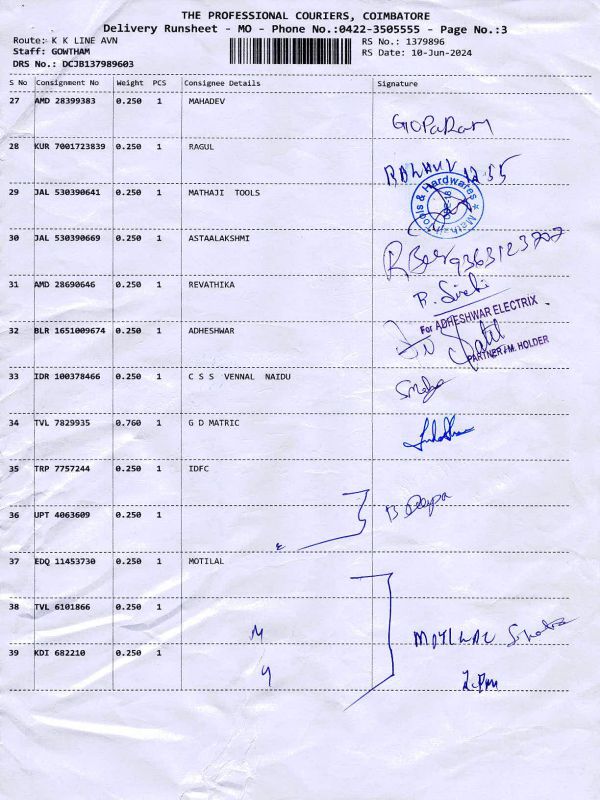 THE PROFESSIONAL COURIERS, COIMBATORE
Delivery Runsheet - MO - Phone No.:0422-3505555 - Page No.:3
Route: K K LINE AVN
RS No.: 1379896
Staff: GOWTHAM
RS Date: 10-Jun-2024
DRS No.: DCJB137989603
S No Consignment No Weight PCS Consignee Details Signature
27 AMD 28399383 0.250 1 MAHADEV
GOPARAM
28 KUR 7001723839 0.250 1 RAGUL
29 JAL 530390641 0.250 1 MATHAJI TOOLS
Tools & Hardwares
30 JAL 530390669 0.250 1 ASTAALAKSHMI
31 AMD 28690646 0.250 1 REVATHIKA
32 BLR 1651009674 0.250 1 ADHESHWAR
For ADHESHWAR ELECTRIX
PARTNER / M. HOLDER
33 IDR 100378466 0.250 1 C S S VENNAL NAIDU
34 TVL 7829935 0.760 1 G D MATRIC
35 TRP 7757244 0.250 1 IDFC
B. Deepa
36 UPT 4063609 0.250 1
37 EDQ 11453730 0.250 1 MOTILAL
38 TVL 6101866 0.250 1
MOTILAL
39 KDI 682210 0.250 1